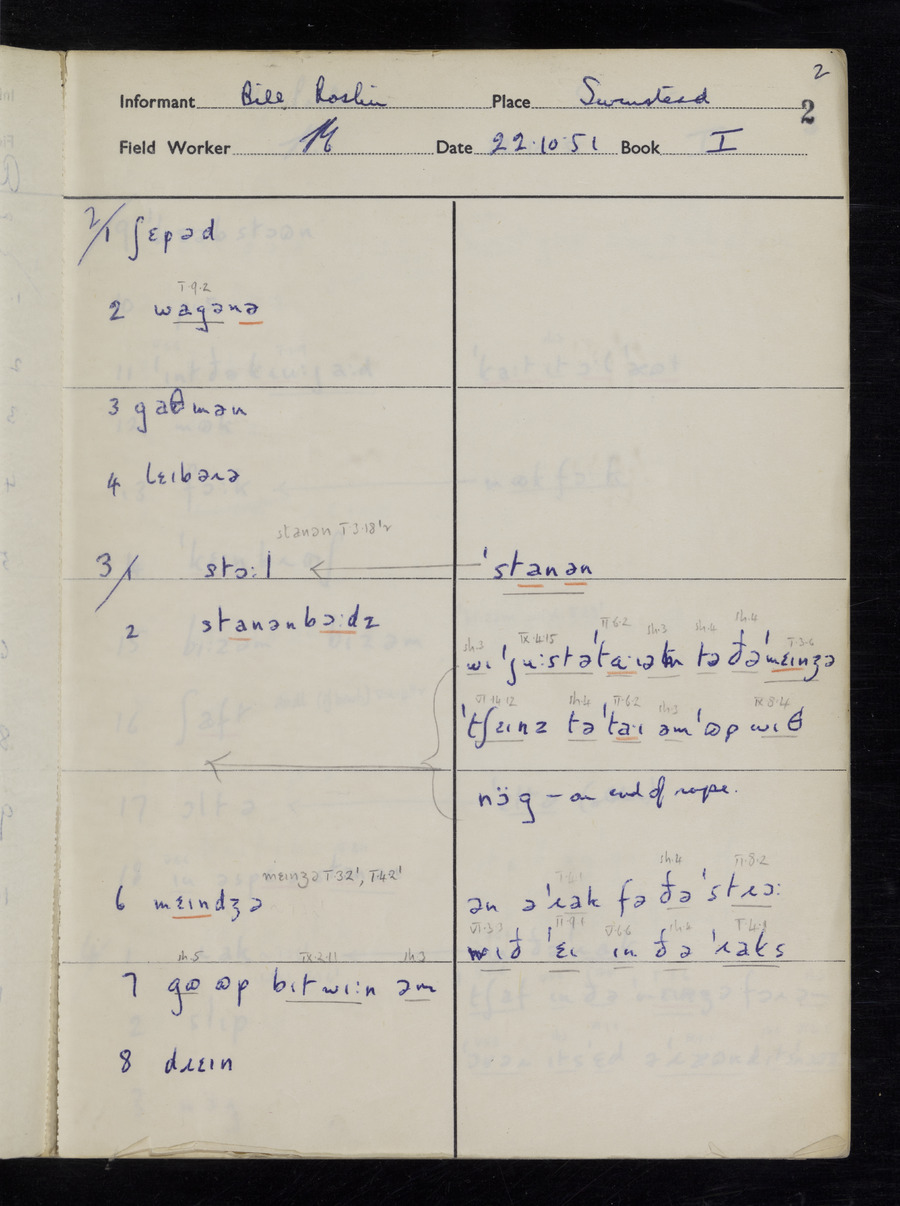 2
Informant Bill Roslin Place Swinstead
2
Field Worker Date 22.10.51 Book I
2/1 ʃɛpəd
I.9.2
2 wagənə
3 gaθmən
4 lɛɪbəɹə
stanən I 3.18'2
3/1 stɔ:l ← 'stanən
2 stanənbɔ:dz
sh.3 IX.4.15 II.6.2 sh.3 sh.4 sh.4 I.3.6
wɪ 'ju:stə 'ta:ɪ əm tə ðə 'mɛɪnʒə
VI.14.12 sh.4 II.6.2 sh.3 IX.8.4
'tʃɛɪnz tə 'ta:ɪ əm 'ʊp wɪθ
nɔ̈g – an end of rope.
mɛɪnʒə I.3.2', I.4.2'
6 mɛɪndʒə
sh.4 II.8.2
ən ə 'ɹak fə ðə 'stɹɔ:
VI.3.3 II.9.1 V.6.6 sh.4 I.4.1
wɪð 'ɛɪ ɪn ðə 'ɹaks
sh.5 IX.2.11 sh.3
7 gʊ ʊp bɪtwi:n əm
8 dɹɛɪn